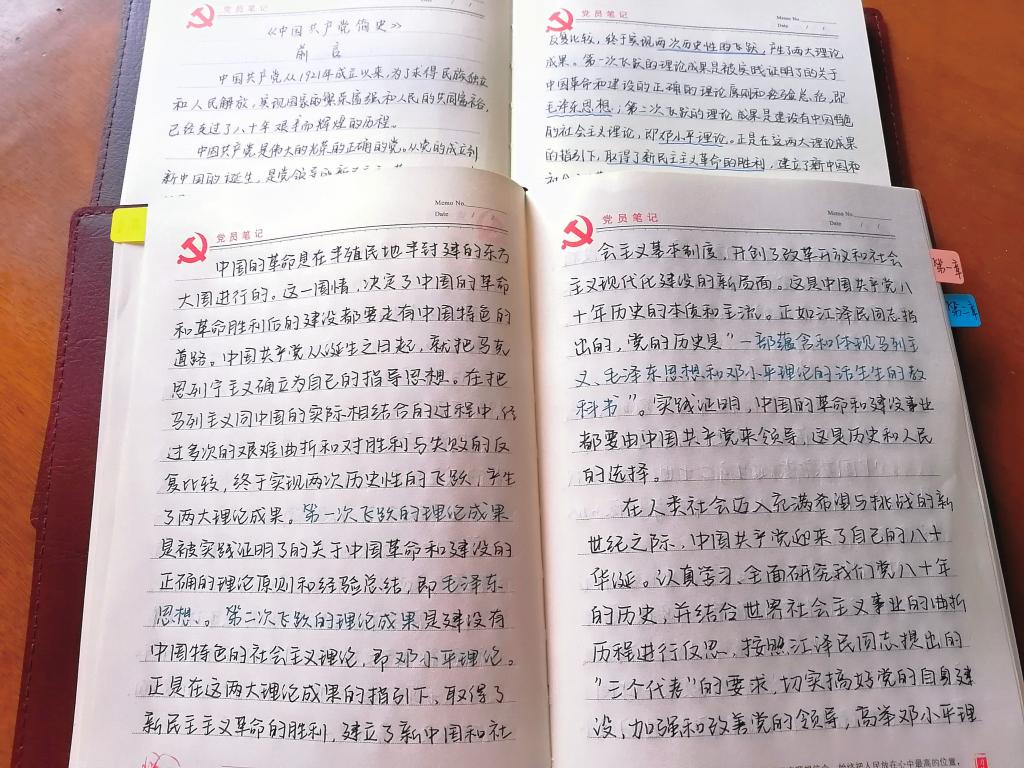 党员笔记
Memo No.
Date / /
《中国共产党简史》
前言
中国共产党从1921年成立以来,为了求得民族独立
和人民解放,实现国家的繁荣富强和人民的共同富裕,
已经走过了八十年艰辛而辉煌的历程。
中国共产党是伟大的光荣的正确的党,从党的成立到
新中国的诞生,是党领导
党员笔记
Memo No.
Date / /
反复比较,终于实现两次历史性的飞跃,产生了两大理论
成果。第一次飞跃的理论成果是被实践证明了的关于
中国革命和建设的正确的理论原则和经验总结,即
毛泽东思想;第二次飞跃的理论成果是建设有中国特色
的社会主义理论,即邓小平理论。正是在这两大理论成果
的指引下,取得了新民主主义革命的胜利,建立了新中国和
党员笔记
Memo No.
Date / /
中国的革命是在半殖民地半封建的东方
大国进行的。这一国情,决定了中国的革命
和革命胜利后的建设都要走有中国特色的
道路。中国共产党从诞生之日起,就把马克
思列宁主义确立为自己的指导思想。在把
马列主义同中国的实际相结合的过程中,经
过多次的艰难曲折和对胜利与失败的反
复比较,终于实现两次历史性的飞跃,产生
了两大理论成果。第一次飞跃的理论成果
是被实践证明了的关于中国革命和建设的
正确的理论原则和经验总结,即毛泽东
思想、。第二次飞跃的理论成果是建设有
中国特色的社会主义理论,即邓小平理论。
正是在这两大理论成果的指引下,取得了
新民主主义革命的胜利,建立了新中国和社
党员笔记
Memo No.
Date / /
会主义基本制度,开创了改革开放和社会
主义现代化建设的新局面。这是中国共产党八
十年历史的本质和主流。正如江泽民同志指
出的,党的历史是“一部蕴含和体现马列主
义、毛泽东思想和邓小平理论的活生生的教
科书”。实践证明,中国的革命和建设事业
都要由中国共产党来领导,这是历史和人民
的选择。
在人类社会迈入充满希望与挑战的新
世纪之际,中国共产党迎来了自己的八十
华诞。认真学习、全面研究我们党八十年
的历史,并结合世界社会主义事业的曲折
历程进行反思,按照江泽民同志提出的
“三个代表”的要求,切实搞好党的自身建
设,加强和改善党的领导,高举邓小平理
始终把人民放在心中最高的位置,
第一章
第二章